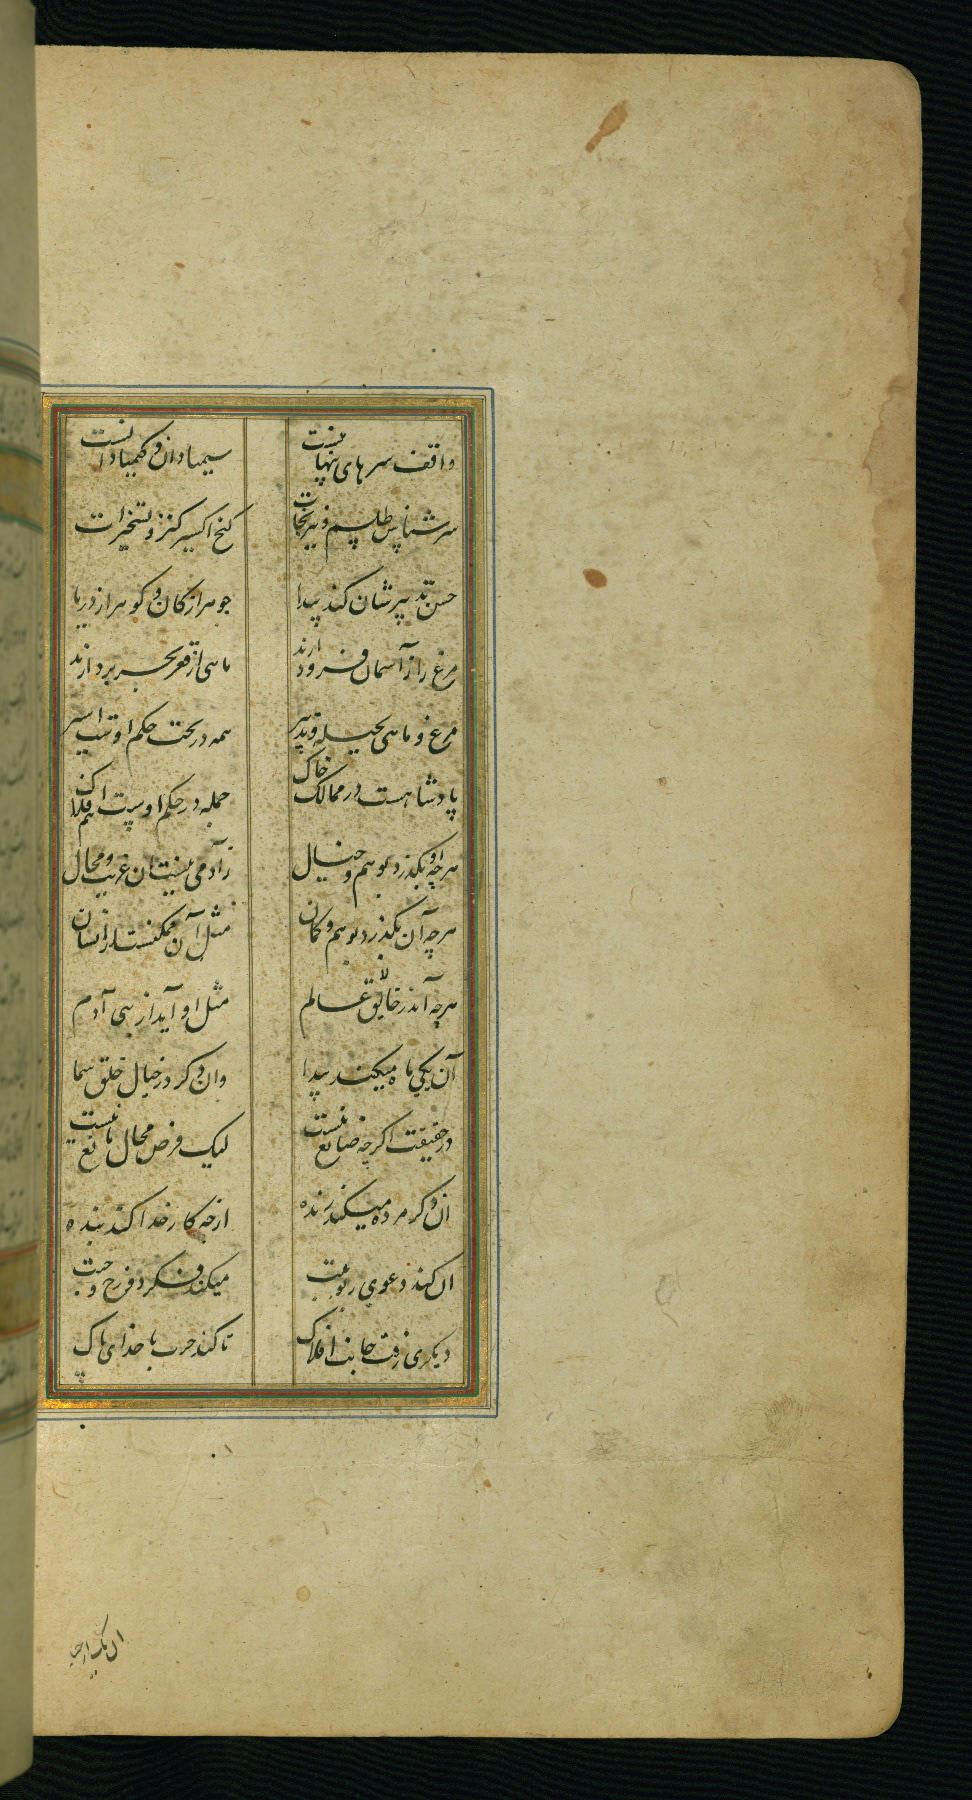 واقف سرهای پنهانست
سیمیادان و کیمیادانست
سرشناس طلسم و نیرنجات
گنج اکسیر کنز و تسخیرات
حسن تدبیرشان کند پیدا
جوهر از کان و کوهر از دریا
مرغ را ز آسمان فرود ارند
ماهی از قعر بحر بردارند
مرغ و ماهی بحیله و تدبیر
همه در تحت حکم اوست اسیر
پادشاهست در ممالک خاک
جمله در حکم اوست هم افلاک
هرچه او بگذرد بوهم و خیال
ز آدمی نیست ان غریب و محال
هرچه آن بگذرد بوهم و کمان
مثل آن ممکنست از انسان
هرچه آمد ز خالق عالم
مثل او آید از بنی آدم
آن یکی ماه میکند پیدا
وان دکر در خیال خلق سما
در حقیقت اکرچه صانع نیست
لیک فرض محال مانع نیست
ان دکر مرده میکند زنده
ارچه کار خدا کند بنده
ان کند دعوی ربوبیت
میکند فکر دفرح و جنت
دیکری رفت جانب افلاک
تا کند حرب با خدای پاک
ان یک از